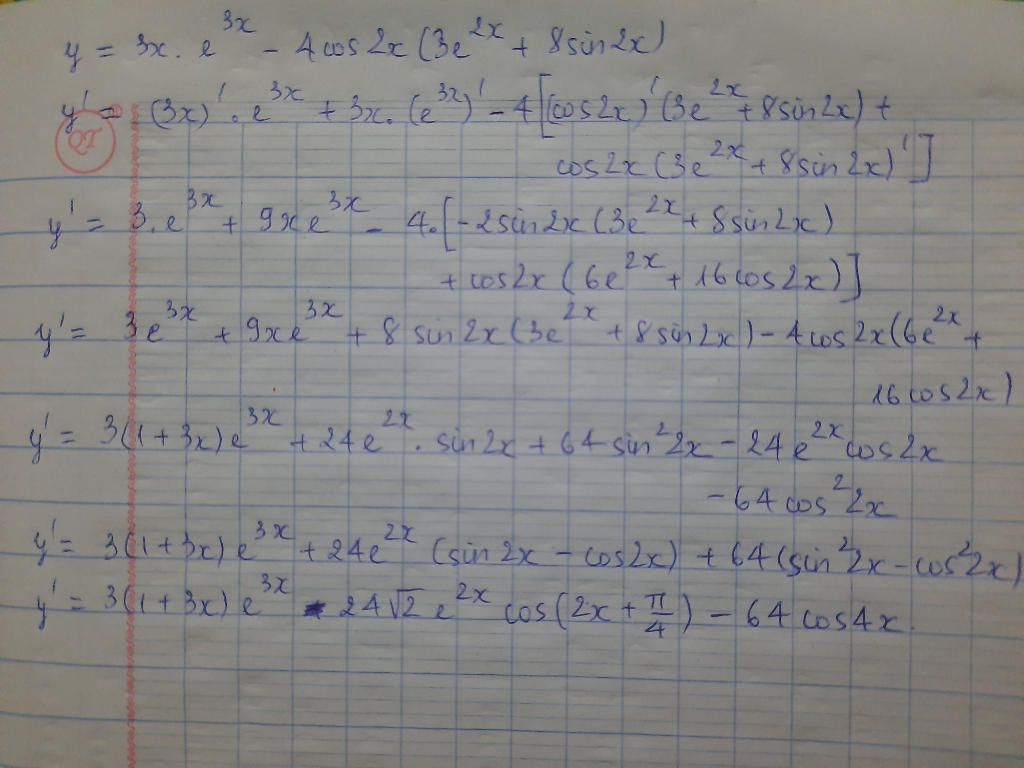 y = 3x. e^{3x} - 4cos2x(3e^{2x} + 8sin2x)
y' = (3x)'. e^{3x} + 3x. (e^{3x})' - 4[(cos2x)'(3e^{2x} + 8sin2x) +
cos2x(3e^{2x} + 8sin2x)']
y' = 3.e^{3x} + 9xe^{3x} - 4.[-2sin2x(3e^{2x} + 8sin2x)
+ cos2x(6e^{2x} + 16cos2x)]
y' = 3e^{3x} + 9xe^{3x} + 8sin2x(3e^{2x} + 8sin2x) - 4cos2x(6e^{2x} +
16cos2x)
y' = 3(1 + 3x)e^{3x} + 24e^{2x}. sin2x + 64sin²2x - 24e^{2x}cos2x
- 64cos²2x
y' = 3(1 + 3x)e^{3x} + 24e^{2x}(sin2x - cos2x) + 64(sin²2x - cos²2x)
y' = 3(1 + 3x)e^{3x} - 24√2 e^{2x} cos(2x + π/4) - 64cos4x.